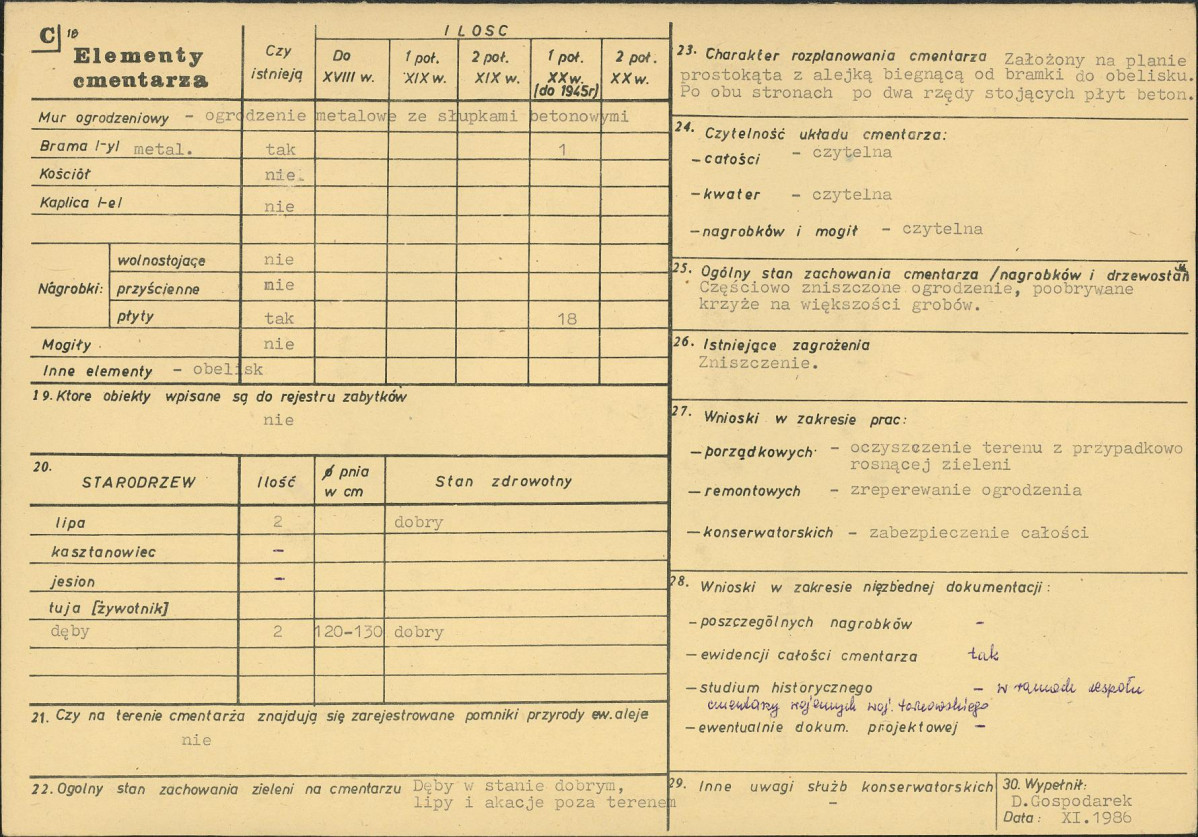 C 18
Elementy
cmentarza
Czy
istnieją
ILOSC
Do
XVIII w.
1 poł.
XIX w.
2 poł.
XIX w.
1 poł.
XX w.
(do 1945r)
2 poł.
XX w.
Mur ogrodzeniowy - ogrodzenie metalowe ze słupkami betonowymi
Brama l-yl metal. tak 1
Kościół nie
Kaplica l-el nie
Nagrobki: wolnostojące nie
przyścienne mie
płyty tak 18
Mogiły nie
Inne elementy - obelisk
19. Ktore obiekty wpisane są do rejestru zabytków
nie
20.
STARODRZEW Ilość ϕ pnia
w cm Stan zdrowotny
lipa 2 dobry
kasztanowiec -
jesion -
tuja [żywotnik]
dęby 2 120-130 dobry
21. Czy na terenie cmentarża znajdują się zarejestrowane pomniki przyrody ew. aleje
nie
22. Ogolny stan zachowania zieleni na cmentarzu Dęby w stanie dobrym,
lipy i akacje poza terenem
23. Charakter rozplanowania cmentarza Założony na planie
prostokąta z alejką biegnącą od bramki do obelisku.
Po obu stronach po dwa rzędy stojących płyt beton.
24. Czytelność układu cmentarza:
- całości - czytelna
- kwater - czytelna
- nagrobków i mogił - czytelna
25. Ogólny stan zachowania cmentarza /nagrobków i drzewostanu
Częściowo zniszczone ogrodzenie, poobrywane
krzyże na większości grobów.
26. Istniejące zagrożenia
Zniszczenie.
27. Wnioski w zakresie prac:
- porządkowych - oczyszczenie terenu z przypadkowo
rosnącej zieleni
- remontowych - zreperewanie ogrodzenia
- konserwatorskich - zabezpieczenie całości
28. Wnioski w zakresie nięzbednej dokumentacji:
- poszczególnych nagrobków -
- ewidencji całości cmentarza tak
- studium historycznego - w ramach zespołu
cmentarzy wojennych woj. tarnowskiego
- ewentualnie dokum. projektowej -
29. Inne uwagi służb konserwatorskich
-
30. Wypełnił:
D.Gospodarek
Data: XI.1986